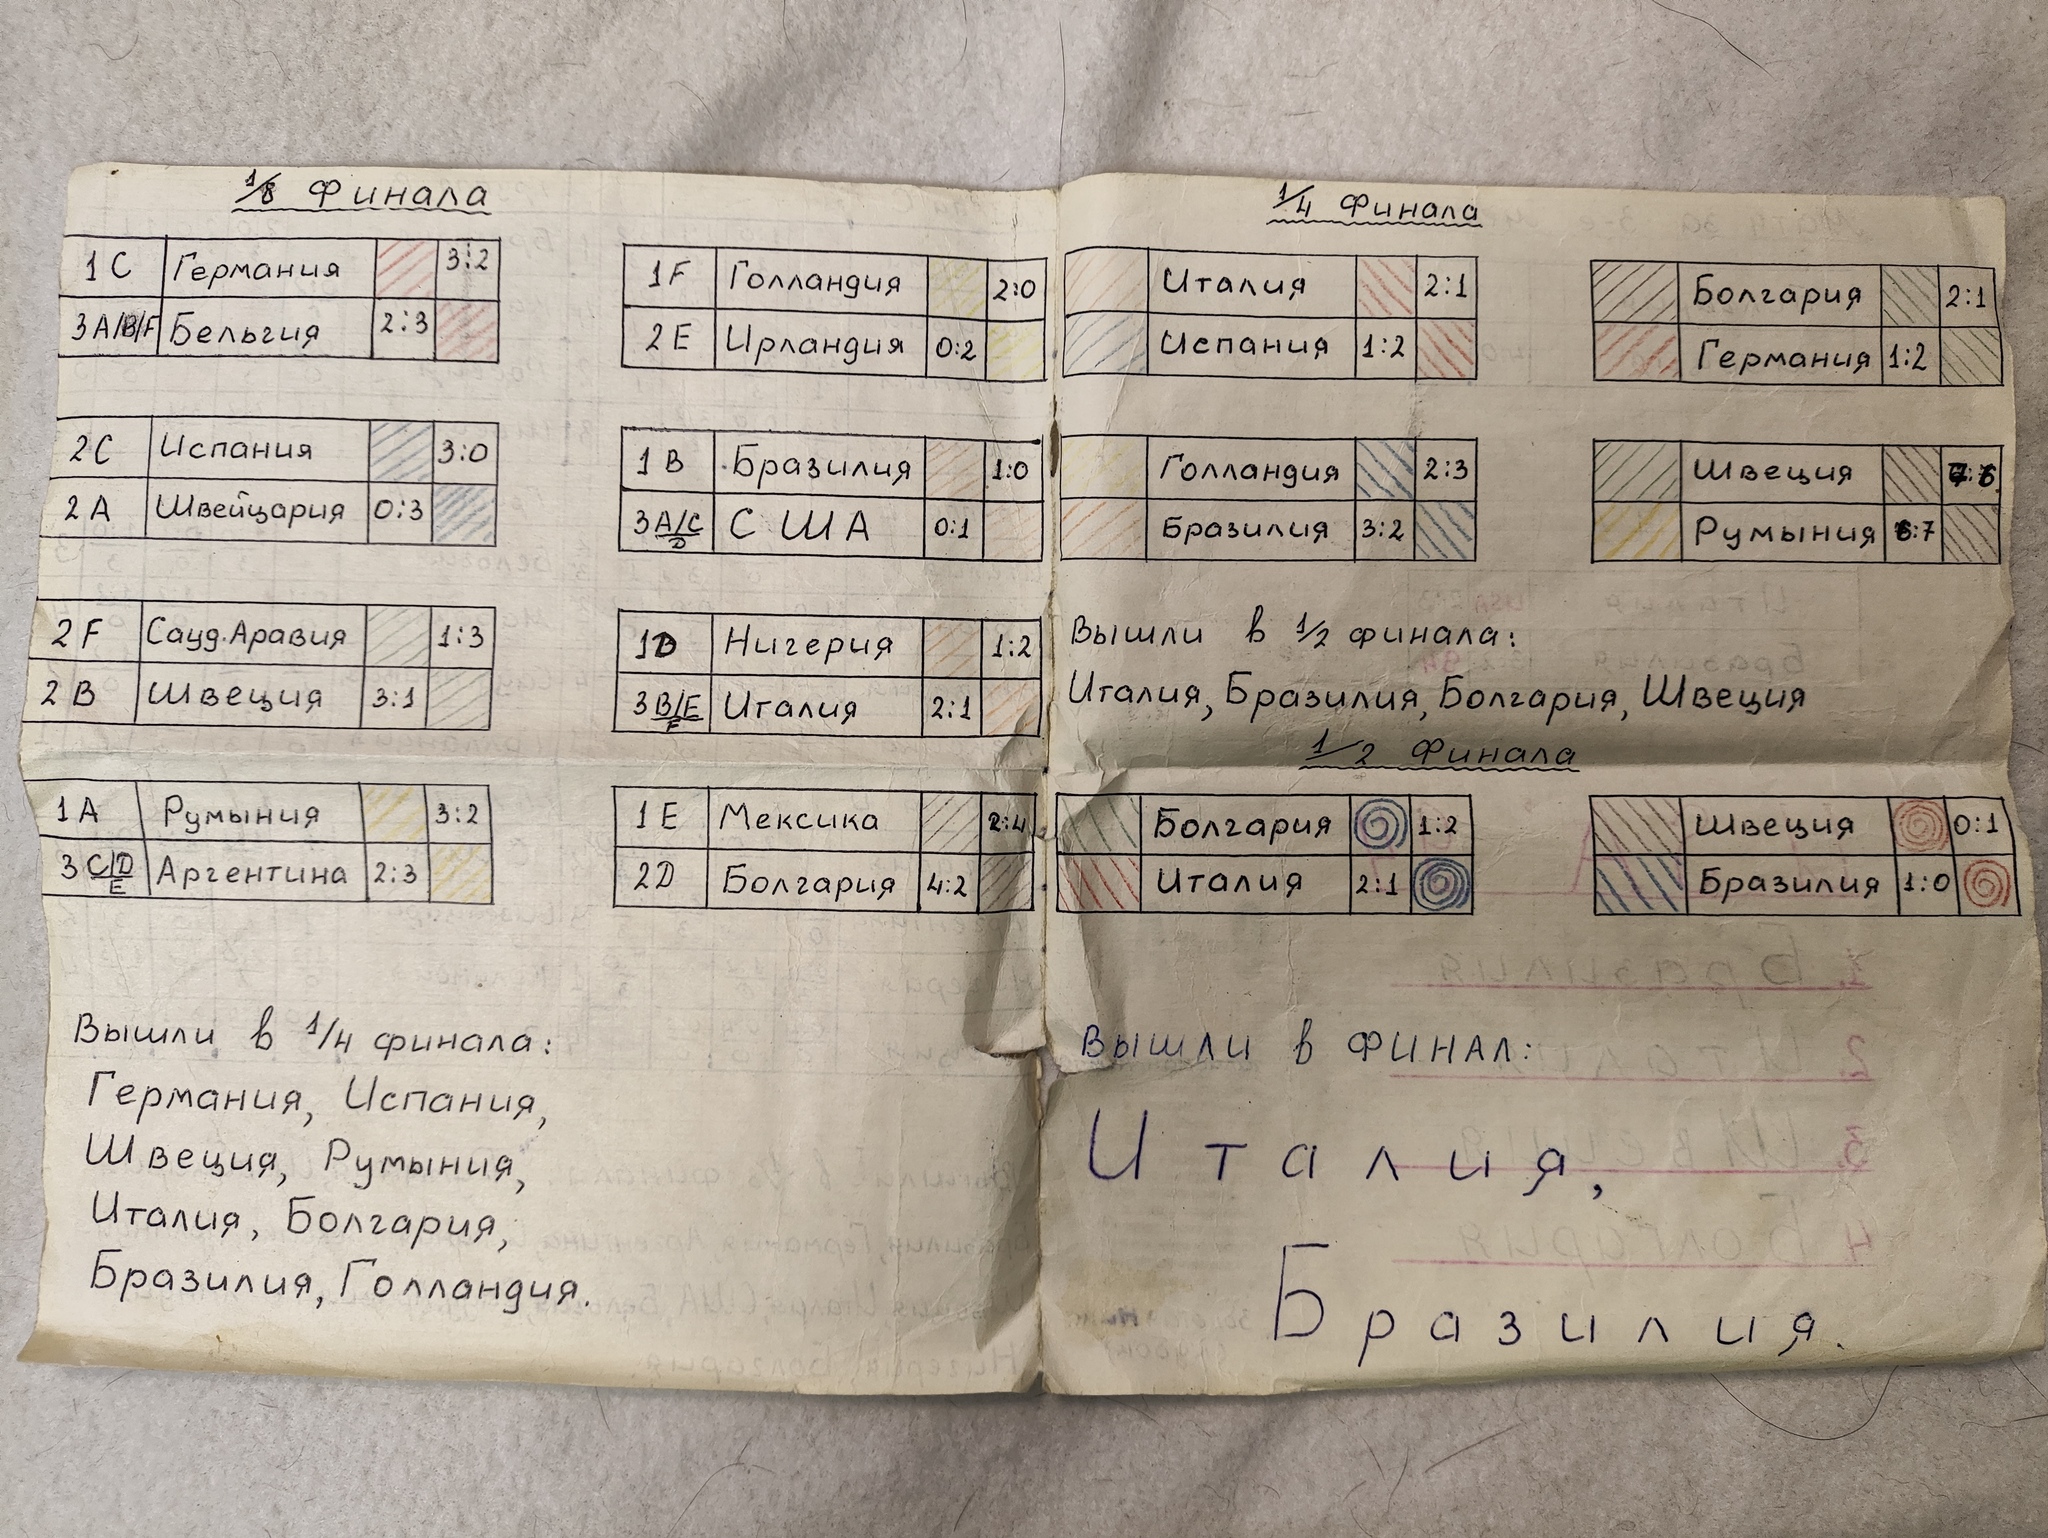 1/8 Финала
1 С Германия 3:2
3 А/В/F Бельгия 2:3
2 С Испания 3:0
2 А Швейцария 0:3
2 F Сауд. Аравия 1:3
2 В Швеция 3:1
1 А Румыния 3:2
3 C/D/E Аргентина 2:3
1 F Голландия 2:0
2 Е Ирландия 0:2
1 В Бразилия 1:0
3 A/C/D США 0:1
1D Нигерия 1:2
3 B/E/F Италия 2:1
1 Е Мексика 2:4
2D Болгария 4:2
Вышли в 1/4 финала:
Германия, Испания,
Швеция, Румыния,
Италия, Болгария,
Бразилия, Голландия.
1/4 Финала
Италия 2:1
Испания 1:2
Голландия 2:3
Бразилия 3:2
Болгария 2:1
Германия 1:2
Швеция 7:6
Румыния 6:7
Вышли в 1/2 финала:
Италия, Бразилия, Болгария, Швеция
1/2 Финала
Болгария 1:2
Италия 2:1
Швеция 0:1
Бразилия 1:0
Вышли в ФИНАЛ:
Италия,
Бразилия.